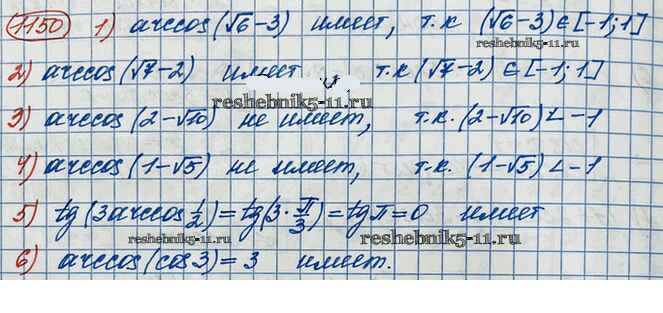 1150 1) arccos(√6-3) имеет, т.к (√6-3)∈[-1;1]
2) arccos(√7-2) имеет т.к (√7-2)∈[-1;1]
reshebnik5-11.ru
3) arccos(2-√10) не имеет, т.к. (2-√10)<-1
4) arccos(1-√5) не имеет, т.к. (1-√5)<-1
5) tg(3arccos 1/2)=tg(3·π/3)=tgπ=0 имеет
reshebnik5-11.ru reshebnik5-11.ru
6) arccos(cos3)=3 имеет.